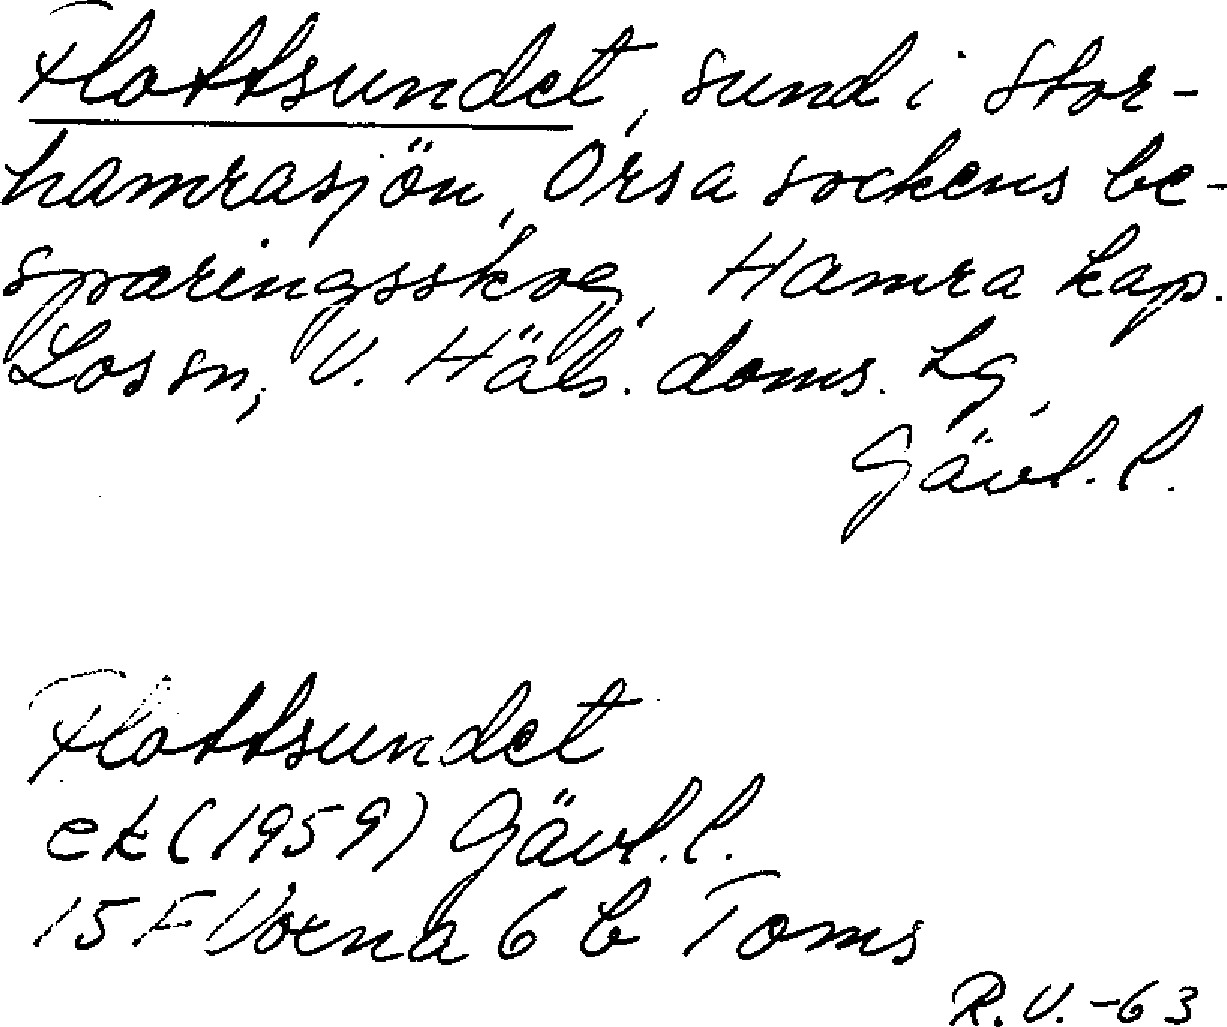 Flottsundet, sund i Stor-
hamrasjön, Orsa sockens be-
sparingsskog, Hamra kap.
Los sn, V. Häls. doms. Lg,
Gävl. l.
Flottsundet
ek (1959) Gävl. l.
15 F Voxna 6 b Toms
R.V. -63